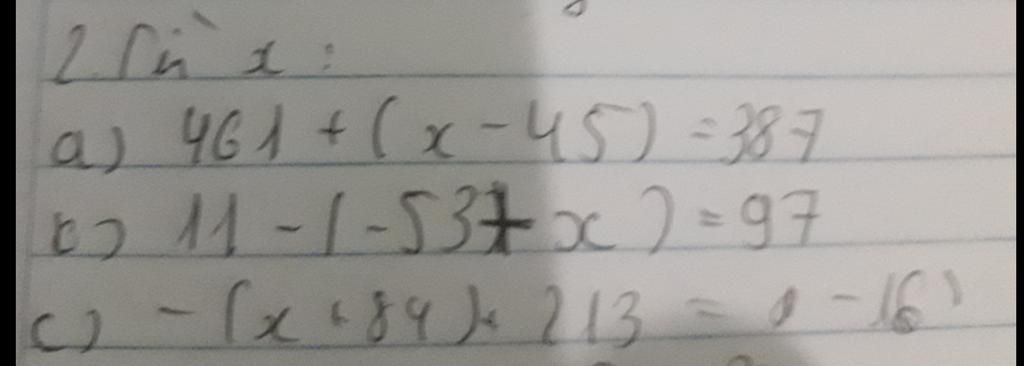 2. Tìm x :
a) 461 + (x - 45) = 387
b) 11 - (-53 + x) = 97
c) - (x + 84) + 213 = - 16